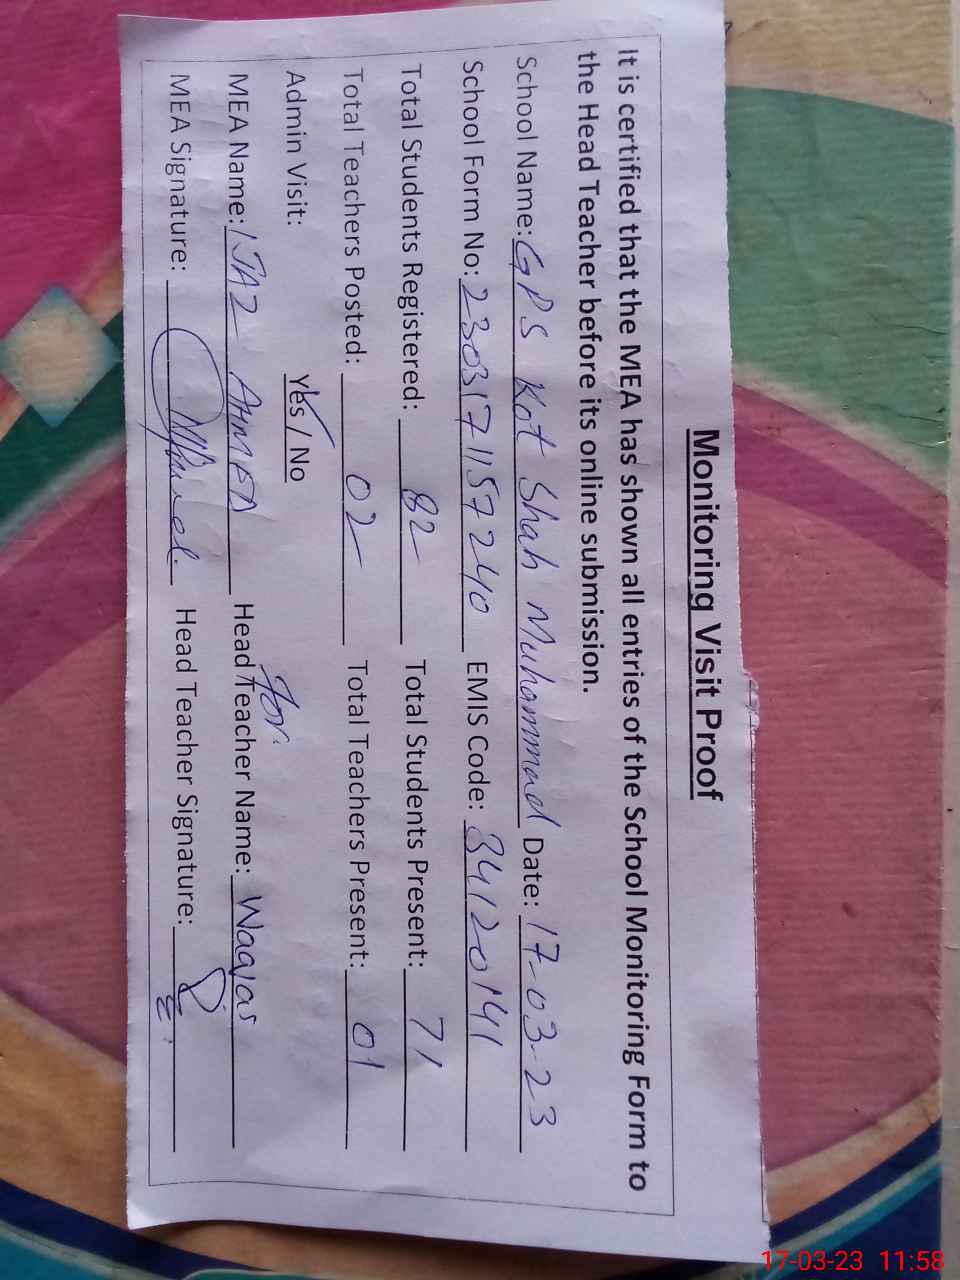 Monitoring Visit Proof
It is certified that the MEA has shown all entries of the School Monitoring Form to
the Head Teacher before its online submission.
School Name: GPS Kot Shah Muhammad Date: 17-03-23
School Form No: 2303171157240 EMIS Code: 34120141
Total Students Registered: 82 Total Students Present: 71
Total Teachers Posted: 02 Total Teachers Present: 01
Admin Visit: Yes / No for
MEA Name: IJAZ AHMED Head Teacher Name: Waqas
MEA Signature: Head Teacher Signature:
17-03-23 11:58